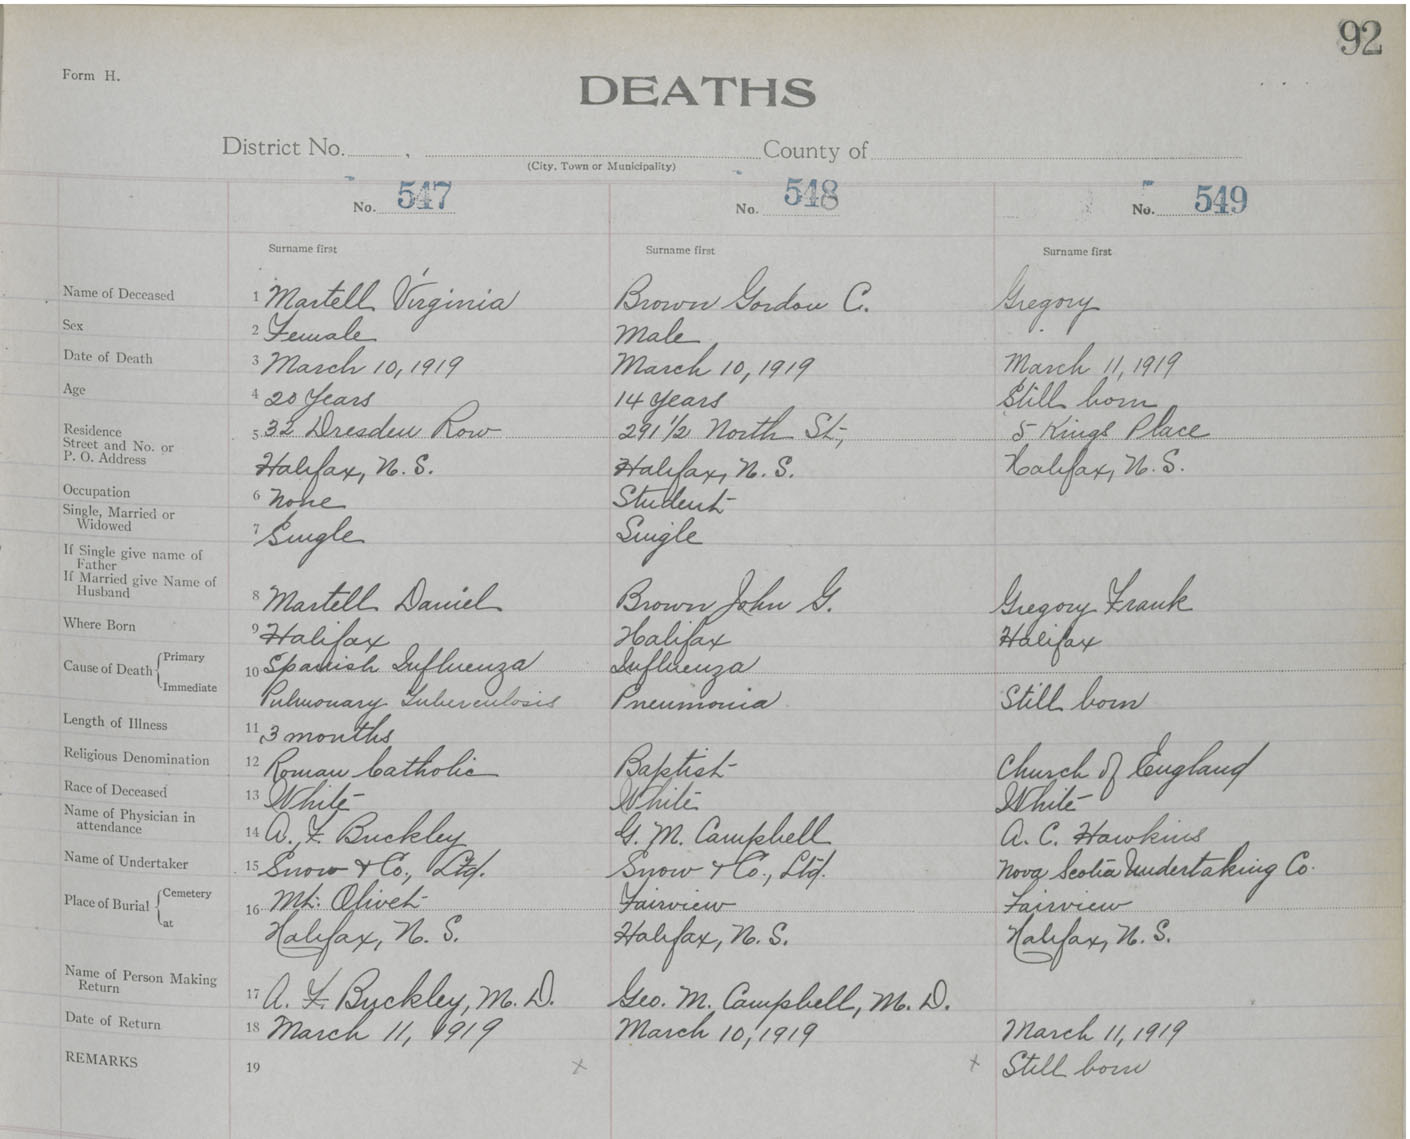 92
Form H.
DEATHS
District No. , County of
(City, Town or Municipality)
No. 547 No. 548 No. 549
Surname first Surname first Surname first
Name of Deceased 1 Martell Virginia Brown Gordon C. Gregory
Sex 2 Female Male
Date of Death 3 March 10, 1919 March 10, 1919 March 11, 1919
Age 4 20 Years 14 years Still born
Residence 5 32 Dresden Row 291 1/2 North St, 5 Kings Place
Street and No. or
P. O. Address Halifax, N. S. Halifax, N. S. Halifax, N. S.
Occupation 6 None Student
Single, Married or
Widowed 7 Single Single
If Single give name of
Father
If Married give Name of
Husband 8 Martell Daniel Brown John G. Gregory Frank
Where Born 9 Halifax Halifax Halifax
Cause of Death { Primary 10 Spanish Influenza Influenza
Immediate Pulmonary Tuberculosis Pneumonia Still born
Length of Illness 11 3 months
Religious Denomination 12 Roman Catholic Baptist Church of England
Race of Deceased 13 White White White
Name of Physician in
attendance 14 A. F. Buckley G. M. Campbell A. C. Hawkins
Name of Undertaker 15 Snow & Co., Ltd. Snow & Co., Ltd. Nova Scotia Undertaking Co.
Place of Burial { Cemetery 16 Mt. Olivet Fairview Fairview
at Halifax, N. S. Halifax, N. S. Halifax, N. S.
Name of Person Making
Return 17 A. F. Buckley, M. D. Geo. M. Campbell, M. D.
Date of Return 18 March 11, 1919 March 10, 1919 March 11, 1919
REMARKS 19 x x Still born